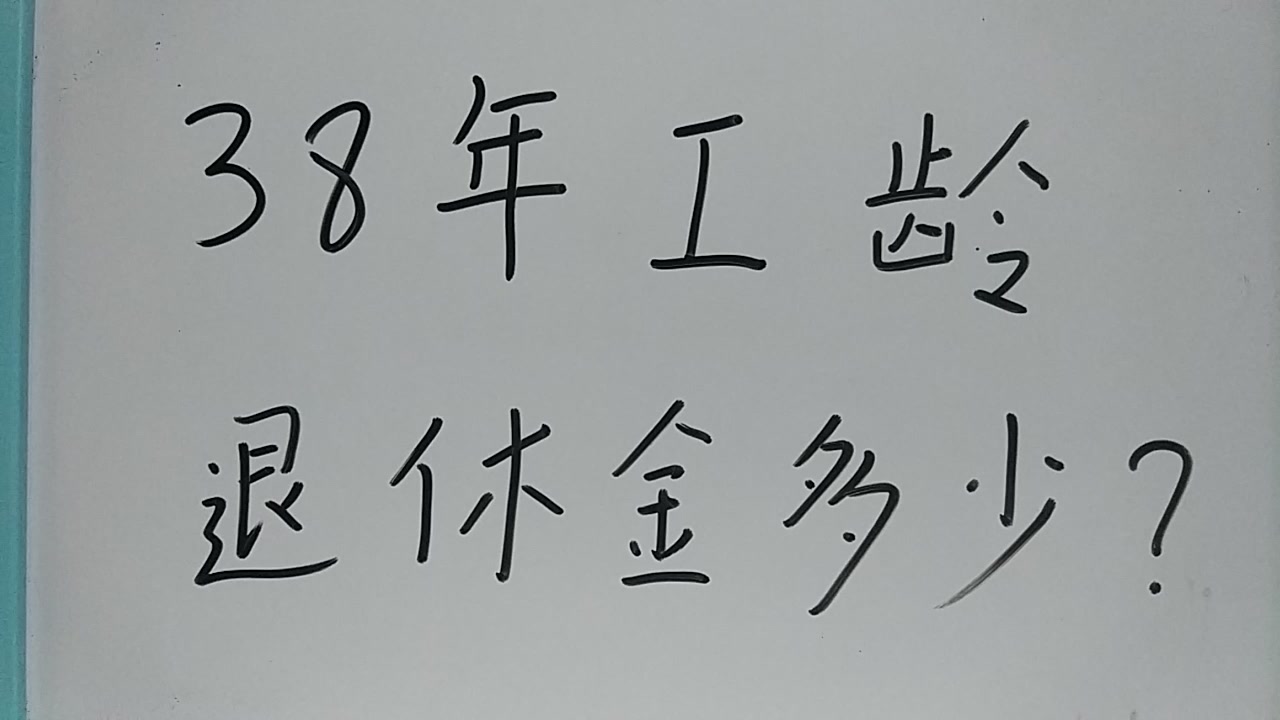 38年工龄
退休金多少?